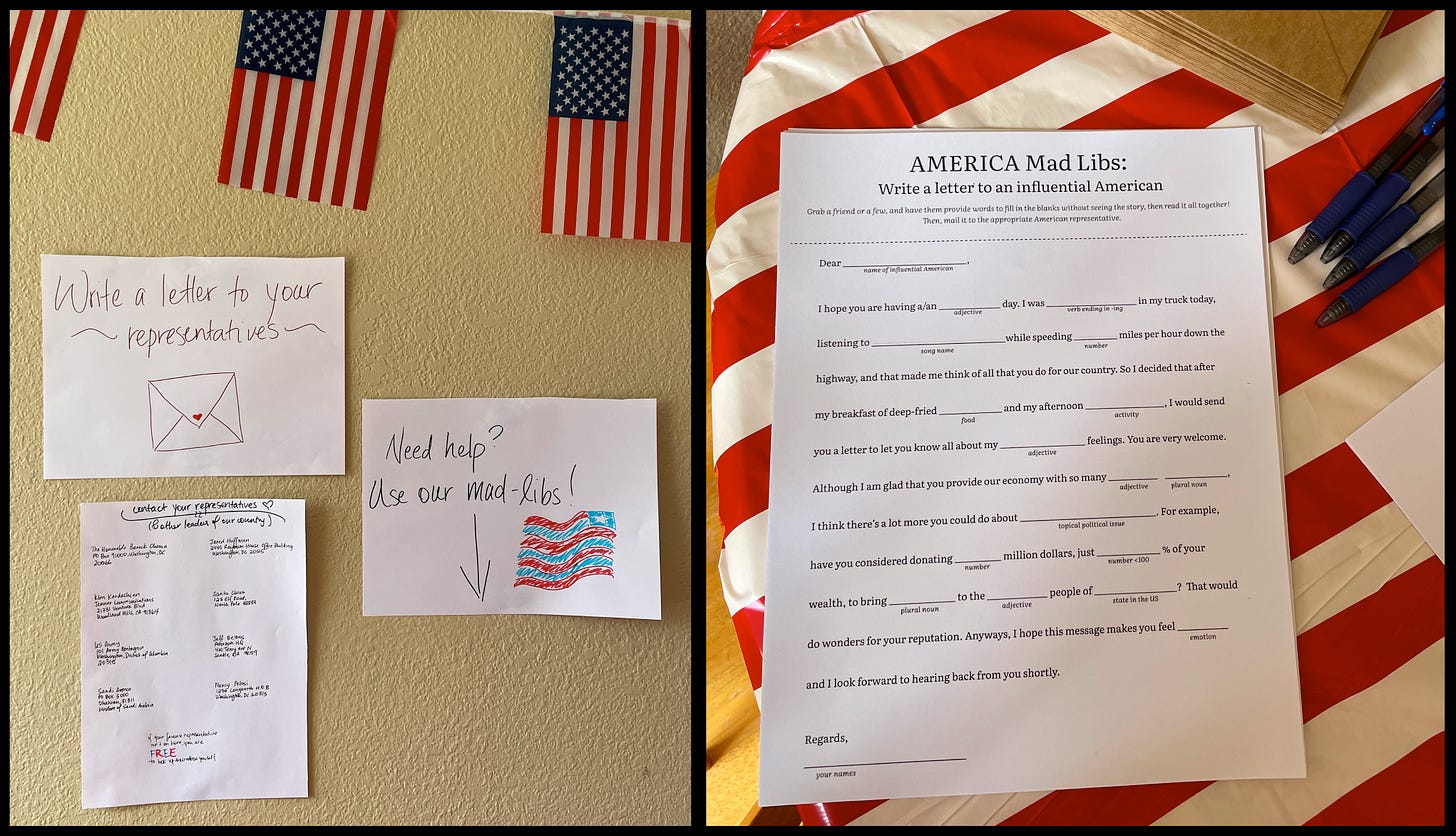 Write a letter to your
~ representatives ~
Need help?
Use our mad-libs!
contact your representatives ♡
(& other leaders of our country)
The Honorable Barack Obama
PO Box 91000, Washington, DC
20066
Jared Huffman
Washington, DC 20515
Kim Kardashian
Jenner Communications
21731 Ventura Blvd
Woodland Hills, CA 91364
Santa Claus
123 Elf Road,
North Pole 88888
US Army
101 Army Pentagon
Washington, District of Columbia
20310
Jeff Bezos
410 Terry Ave N
Seattle, WA 98109
Saudi Aramco
PO Box 5000
Dhahran, 31311
Kingdom of Saudi Arabia
Nancy Pelosi
1236 Longworth H.O.B
Washington, DC 20515
if your favorite representative
isn't on here, you are
FREE
to look up the address yourself
AMERICA Mad Libs:
Write a letter to an influential American
Grab a friend or a few, and have them provide words to fill in the blanks without seeing the story, then read it all together!
Then, mail it to the appropriate American representative.
Dear ____________________,
name of influential American
I hope you are having a/an __________ day. I was _______________ in my truck today,
adjective verb ending in -ing
listening to ______________________ while speeding _______ miles per hour down the
song name number
highway, and that made me think of all that you do for our country. So I decided that after
my breakfast of deep-fried __________ and my afternoon _____________, I would send
food activity
you a letter to let you know all about my ______________ feelings. You are very welcome.
adjective
Although I am glad that you provide our economy with so many ________ __________,
adjective plural noun
I think there's a lot more you could do about ______________________. For example,
topical political issue
have you considered donating _______ million dollars, just __________ % of your
number number <100
wealth, to bring ___________ to the __________ people of _____________? That would
plural noun adjective state in the US
do wonders for your reputation. Anyways, I hope this message makes you feel ________
emotion
and I look forward to hearing back from you shortly.
Regards,
__________________________
your names